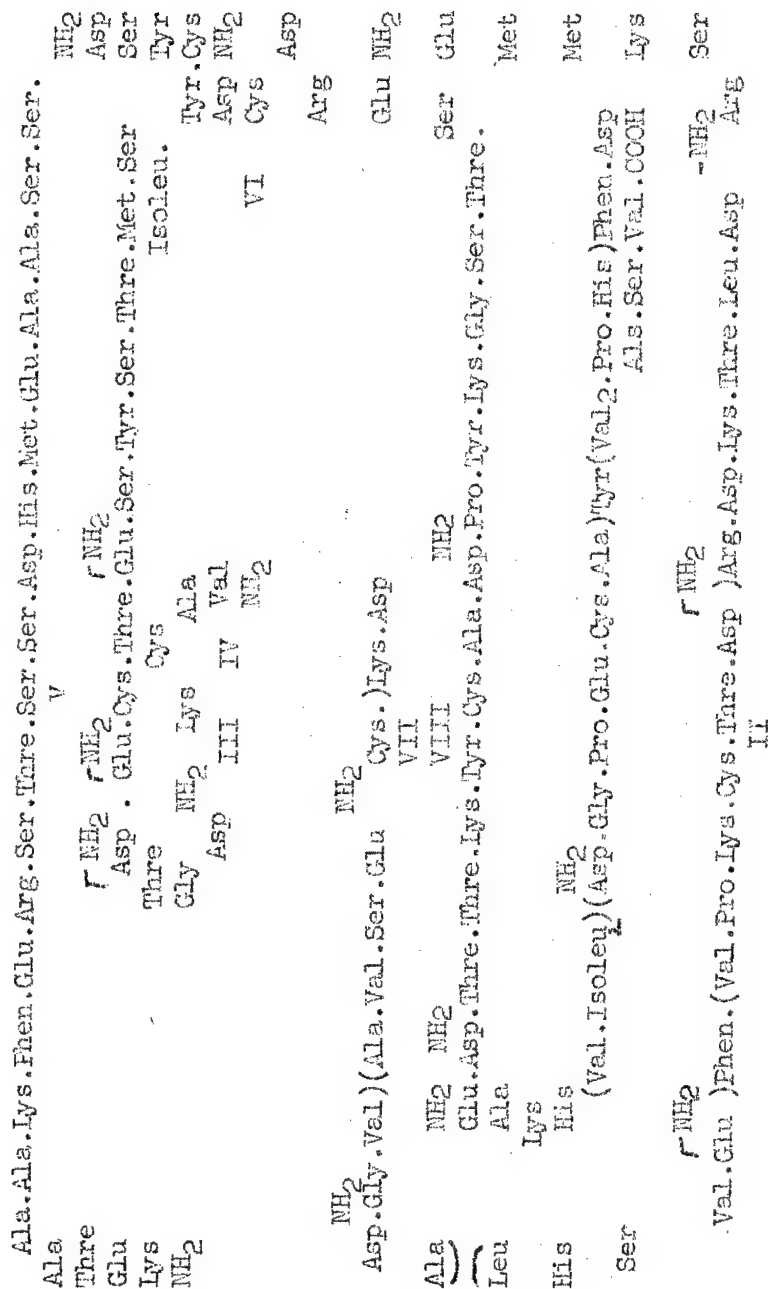 Ala.Ala.Lys.Phen.Glu.Arg.Ser.Thre.Ser.Ser.Asp.His.Met.Glu.Ala.Ala.Ser.Ser.
Ala V NH2
Thre NH2 NH2 NH2 Asp
Glu Asp . Glu.Cys.Thre.Glu.Ser.Tyr.Ser.Thre.Met.Ser Ser
Lys Thre Cys Isoleu. Tyr
NH2 Gly NH2 Lys Ala Tyr.Cys
Asp III IV Val Asp NH2
NH2 VI Cys
Asp
Arg
NH2 NH2
Asp.Gly.Val)(Ala.Val.Ser.Glu Cys.)Lys.Asp Glu NH2
VII
Ala) NH2 NH2 VIII NH2 Ser Glu
(Glu.Asp.Thre.Thre.Lys.Tyr.Cys.Ala.Asp.Pro.Tyr.Lys.Gly.Ser.Thre.
Leu Ala Met
Lys
His His NH2 Met
(Val.Isoleu)2(Asp.Gly.Pro.Glu.Cys.Ala)Tyr(Val2.Pro.His)Phen.Asp
Ser Als.Ser.Val.COOH Lys
NH2 NH2 -NH2 Ser
Val.Glu )Phen.(Val.Pro.Lys.Cys.Thre.Asp )Arg.Asp.Lys.Thre.Leu.Asp Arg
II